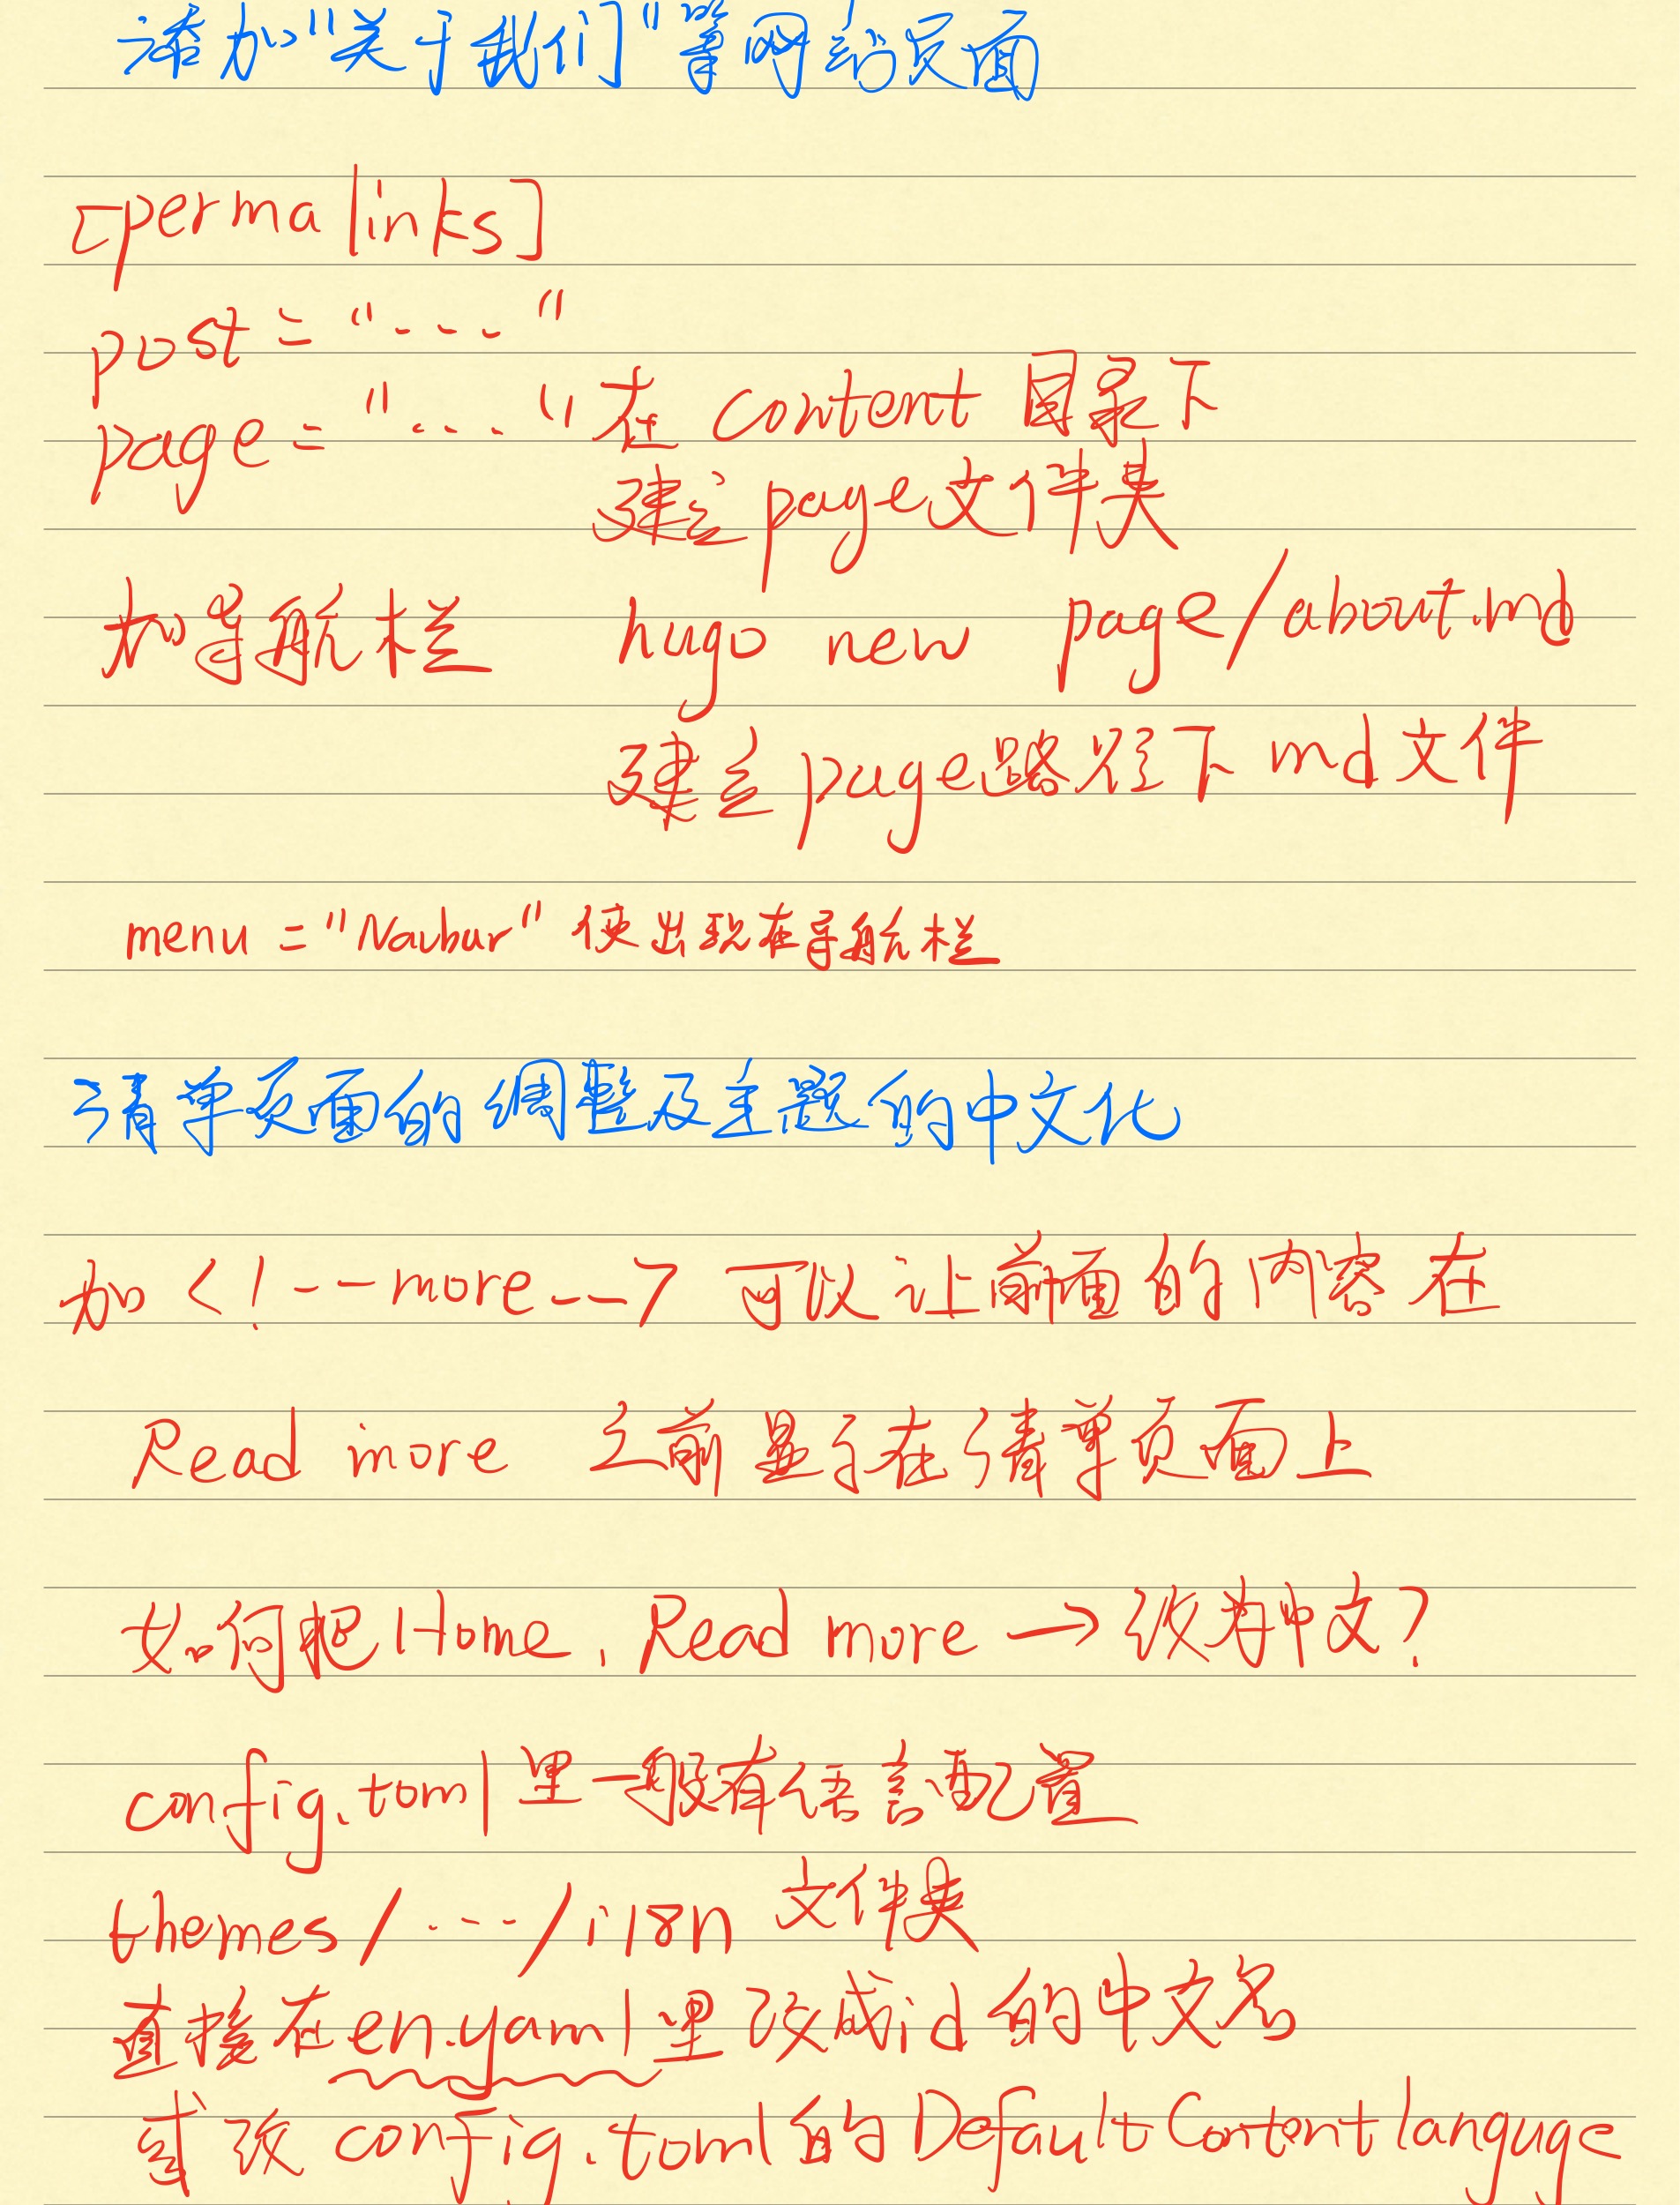 添加"关于我们"等网站页面
[permalinks]
post = "----"
page = "---" 在 content 目录下
建立page文件夹
加导航栏 hugo new page/about.md
建立page路径下md文件
menu = "Navbar" 使出现在导航栏
清单页面的调整及主题的中文化
加 <!--more--> 可以让前面的内容在
Read more 之前显示在清单页面上
如何把Home, Read more → 改为中文?
config.toml里一般有语言配置
themes/---/i18n 文件夹
直接在en.yaml里改成id的中文名
或改config.toml的DefaultContentlanguge